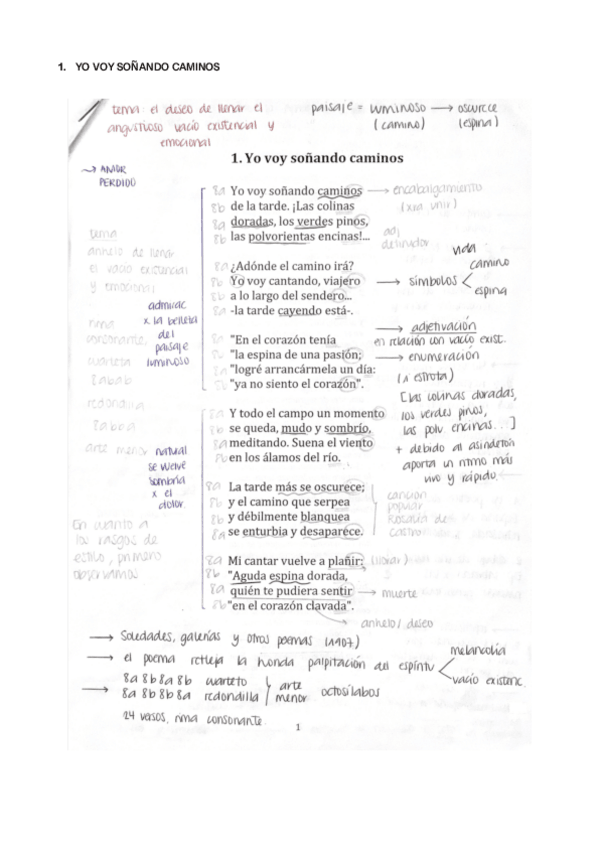 1. YO VOY SOÑANDO CAMINOS
tema: el deseo de llenar el
angustioso vacío existencial y
emocional
paisaje = luminoso → oscurece
(camino) (espina)
→ AMOR
PERDIDO
1. Yo voy soñando caminos
8a Yo voy soñando caminos → encabalgamiento
8b de la tarde. ¡Las colinas
8a doradas, los verdes pinos,
8b las polvorientas encinas!...
8a ¿Adónde el camino irá?
8b Yo voy cantando, viajero
8b a lo largo del sendero...
8a -la tarde cayendo está-.
"En el corazón tenía
"la espina de una pasión;
"logré arrancármela un día:
"ya no siento el corazón".
8a Y todo el campo un momento
8b se queda, mudo y sombrío,
8a meditando. Suena el viento
8b en los álamos del río.
8a La tarde más se oscurece;
8b y el camino que serpea
8b y débilmente blanquea
8a se enturbia y desaparece.
8a Mi cantar vuelve a plañir: (llorar)
8b "Aguda espina dorada,
8a quién te pudiera sentir → muerte
8b "en el corazón clavada".
→ anhelo/deseo
tema
anhelo de llenar
el vacío existencial
y emocional
rima
consonante,
cuarteta
8abab
redondilla
8abba
arte menor
En cuanto a
los rasgos de
estilo, primero
observamos
admirac
x la belleza
del
paisaje
luminoso
natural
se vuelve
sombría
x el
dolor.
(xra unir)
adj
→ símbolos
vida
camino
espina
→ adjetivación
en relación con vacío exist.
→ enumeración
(1ª estrofa)
[las colinas doradas,
los verdes pinos,
las polv. encinas...]
+ debido al asíndeton
aporta un ritmo más
vivo y rápido.
canción
popular
Rosalía de
Castro
→ Soledades, galerías y otros poemas (1907)
→ el poema refleja la honda palpitación del espíritu
melancolía
vacío existenc.
→ 8a 8b 8a 8b cuarteto
8a 8b 8b 8a redondilla
arte
menor
octosílabos
24 versos, rima consonante.
1